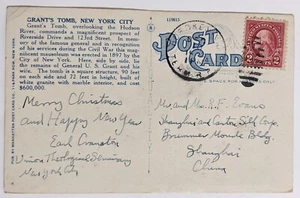 GRANT'S TOMB, NEW YORK CITY
Grant's Tomb, overlooking the Hudson
River, commands a magnificent prospect of
Riverside Drive and 123rd Street. In
memory of the famous general and in recognition
of his services during the Civil War this magnificent
mausoleum was erected in 1897 by the
City of New York. Here, side by side, lie
the remains of General U. S. Grant and his
wife. The tomb is a square structure, 90 feet
on each side and 72 feet in height, built of
white granite with marble interior, and cost
$600,000.
POST
CARD
Merry Christmas
and Happy New Year
Earl Cranston
Union Theological Seminary
New York City
Mr and Mrs R.F. Evans
Shanghai and Canton Silk Corp.
Building
Shanghai
China